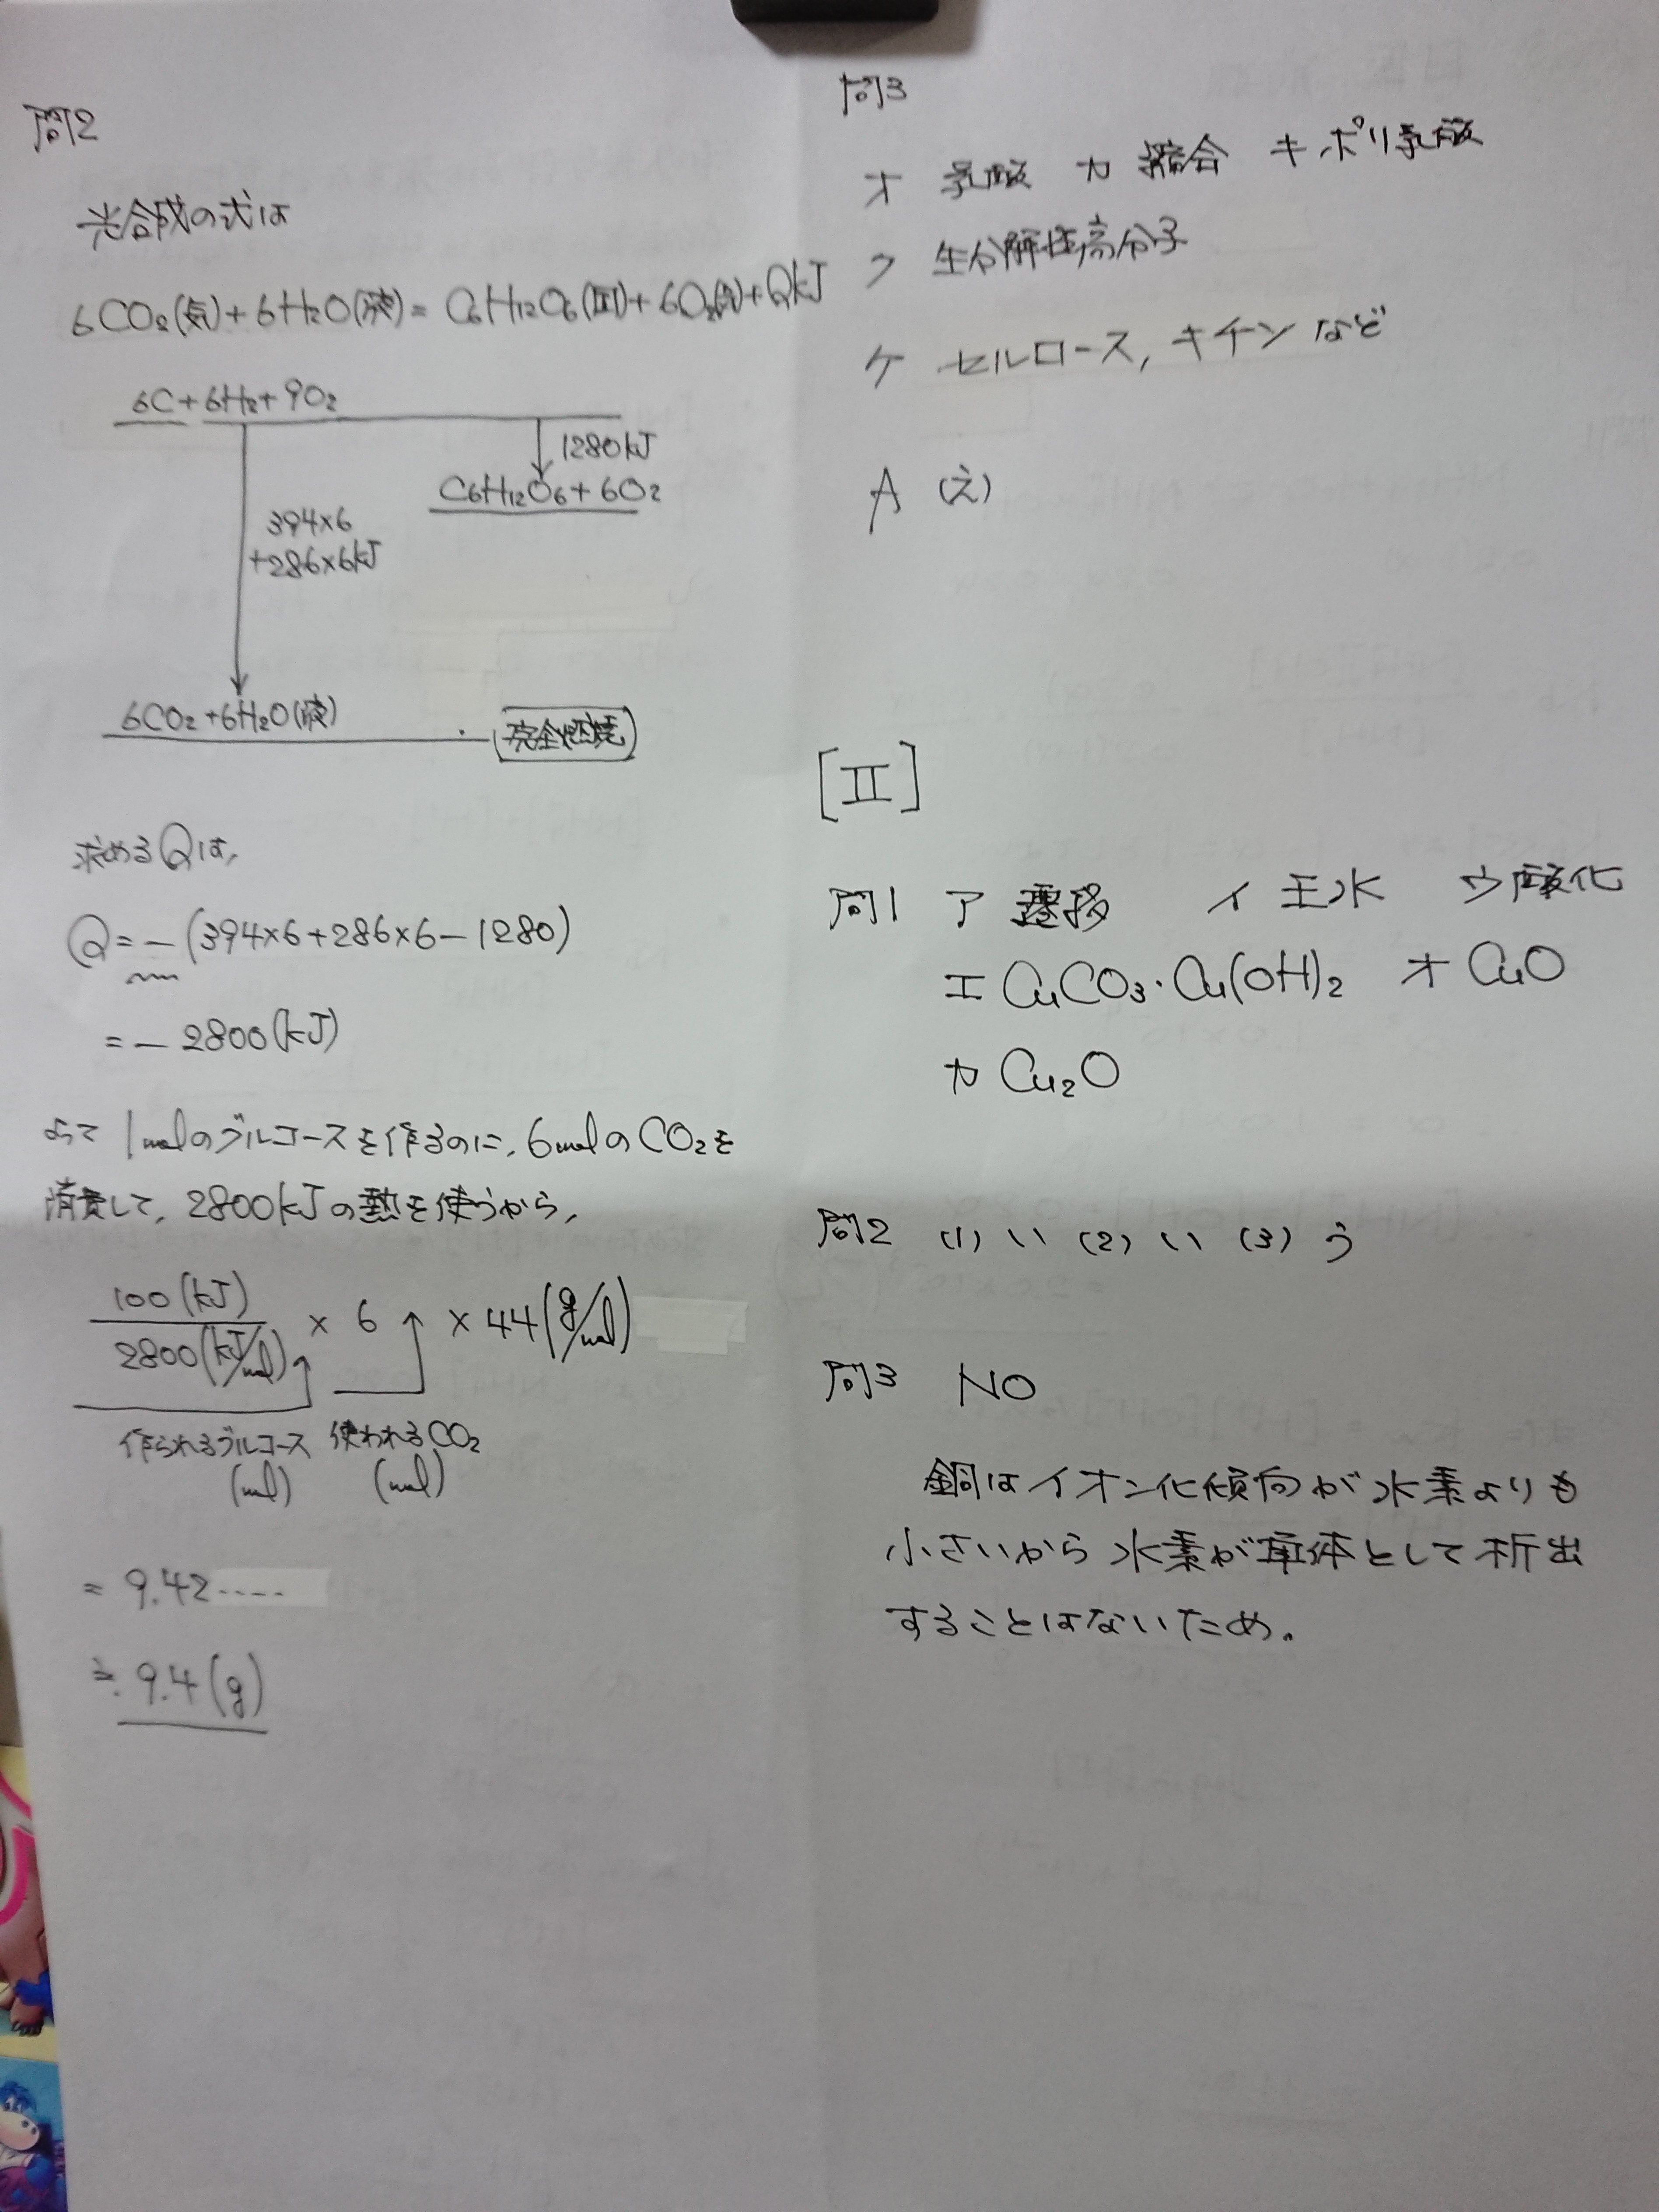 問2
光合成の式は
6CO₂(気)+6H₂O(液)= C₆H₁₂O₆(固)+6O₂(気)+QkJ
6C+6H₂+9O₂
1280kJ
C₆H₁₂O₆+6O₂
394×6
+286×6kJ
6CO₂+6H₂O(液)
(完全燃焼)
求めるQは、
Q=-(394×6+286×6-1280)
=-2800(kJ)
よって 1molのグルコースを作るのに、6molのCO₂を
消費して、2800kJの熱を使うから、
100(kJ)/2800(kJ/mol) × 6 × 44(g/mol)
作られるグルコース(mol) 使われるCO₂(mol)
= 9.42‥‥
≒ 9.4(g)
問3
オ 乳酸 カ 縮合 キ ポリ乳酸
ク 生分解性高分子
ケ セルロース, キチン など
A (え)
[Ⅱ]
問1 ア 遷移 イ 王水 ウ 酸化
エ CuCO₃・Cu(OH)₂ オ CuO
カ Cu₂O
問2 (1) い (2) い (3) う
問3 NO
銅はイオン化傾向が水素よりも
小さいから水素が単体として析出
することはないため。